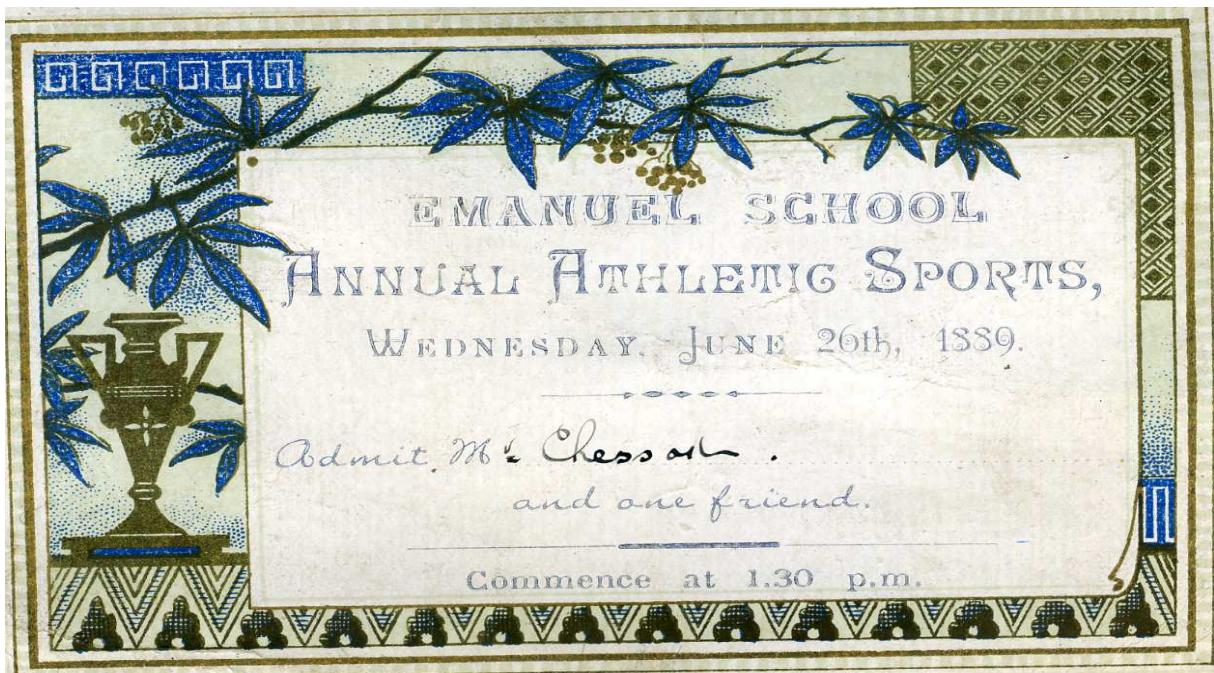 EMANUEL SCHOOL
ANNUAL ATHLETIC SPORTS,
WEDNESDAY, JUNE 26th, 1889.
Admit Mr
and one friend.
Commence at 1.30 p.m.